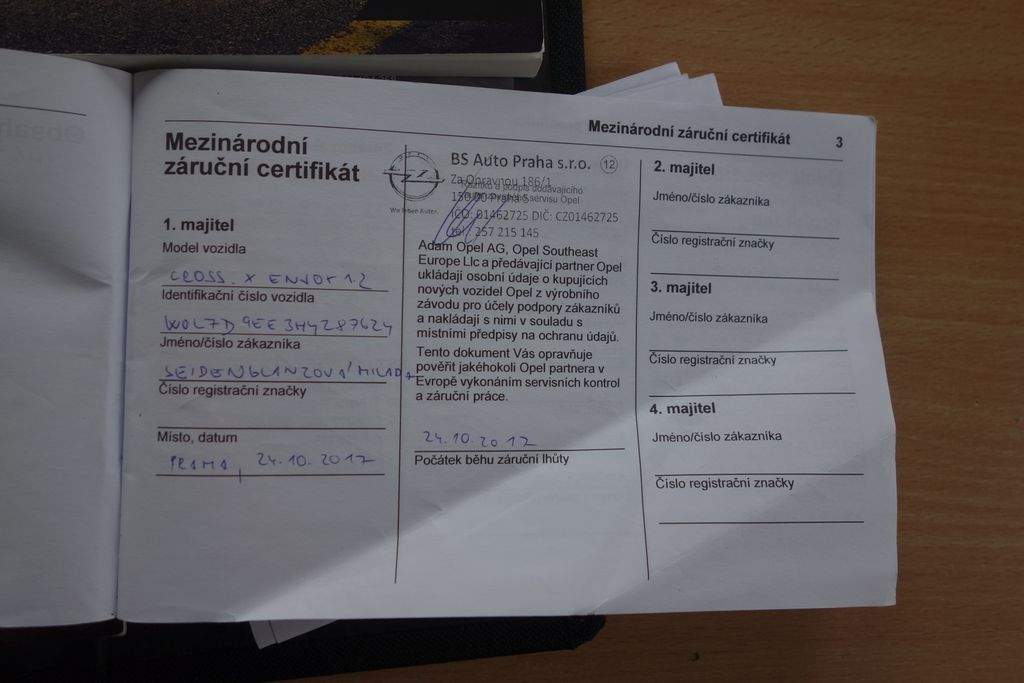 Mezinárodní záruční certifikát 3
Mezinárodní
záruční certifikát
1. majitel
Model vozidla
CROSS. X ENJOY 1.2
Identifikační číslo vozidla
W0L7D9EE3H4287624
Jméno/číslo zákazníka
SEIDENGLANZOVÁ MILADA
Číslo registrační značky
Místo, datum
PRAHA, 24.10.2017
BS Auto Praha s.r.o. 12
Za Opravnou 186/1
Razítko a podpis dodávajícího
servisu Opel
150 00 Praha 5
IČO: 01462725 DIČ: CZ01462725
tel.: 257 215 145
Wir leben Autos.
Adam Opel AG, Opel Southeast
Europe Llc a předávající partner Opel
ukládají osobní údaje o kupujících
nových vozidel Opel z výrobního
závodu pro účely podpory zákazníků
a nakládají s nimi v souladu s
místními předpisy na ochranu údajů.
Tento dokument Vás opravňuje
pověřit jakéhokoli Opel partnera v
Evropě vykonáním servisních kontrol
a záruční práce.
24.10.2017
Počátek běhu záruční lhůty
2. majitel
Jméno/číslo zákazníka
Číslo registrační značky
3. majitel
Jméno/číslo zákazníka
Číslo registrační značky
4. majitel
Jméno/číslo zákazníka
Číslo registrační značky